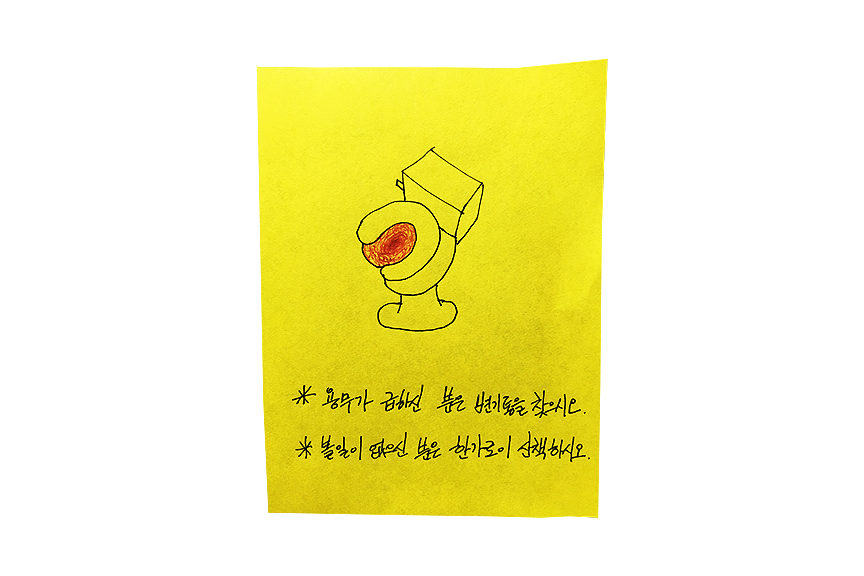 ※ 용무가 급하신 분은 변기통을 찾으시오.
※ 볼일이 없으신 분은 한가로이 산책하시오.